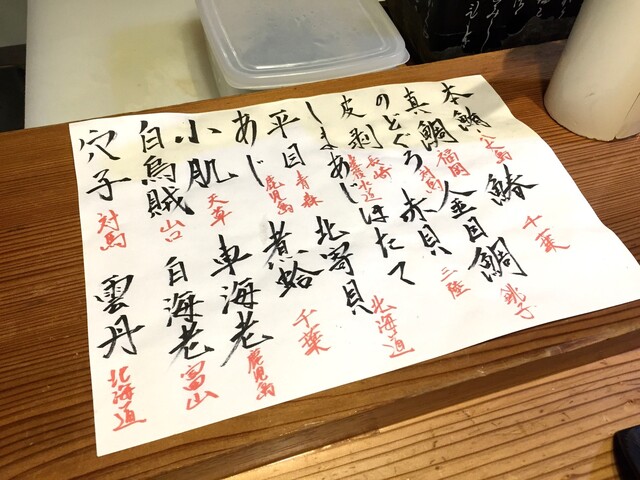 本鮪 鰆 千葉
真鯛 福岡 金目鯛 銚子
のどぐろ 対馬 赤貝 三陸
皮剥 長崎 ほたて 北海道
しまあじ 豊後水道 北寄貝
平目 青森 煮蛤 千葉
あじ 鹿児島 車海老 鹿児島
小肌 天草 白海老 富山
白烏賊 山口 雲丹 北海道
穴子 対馬